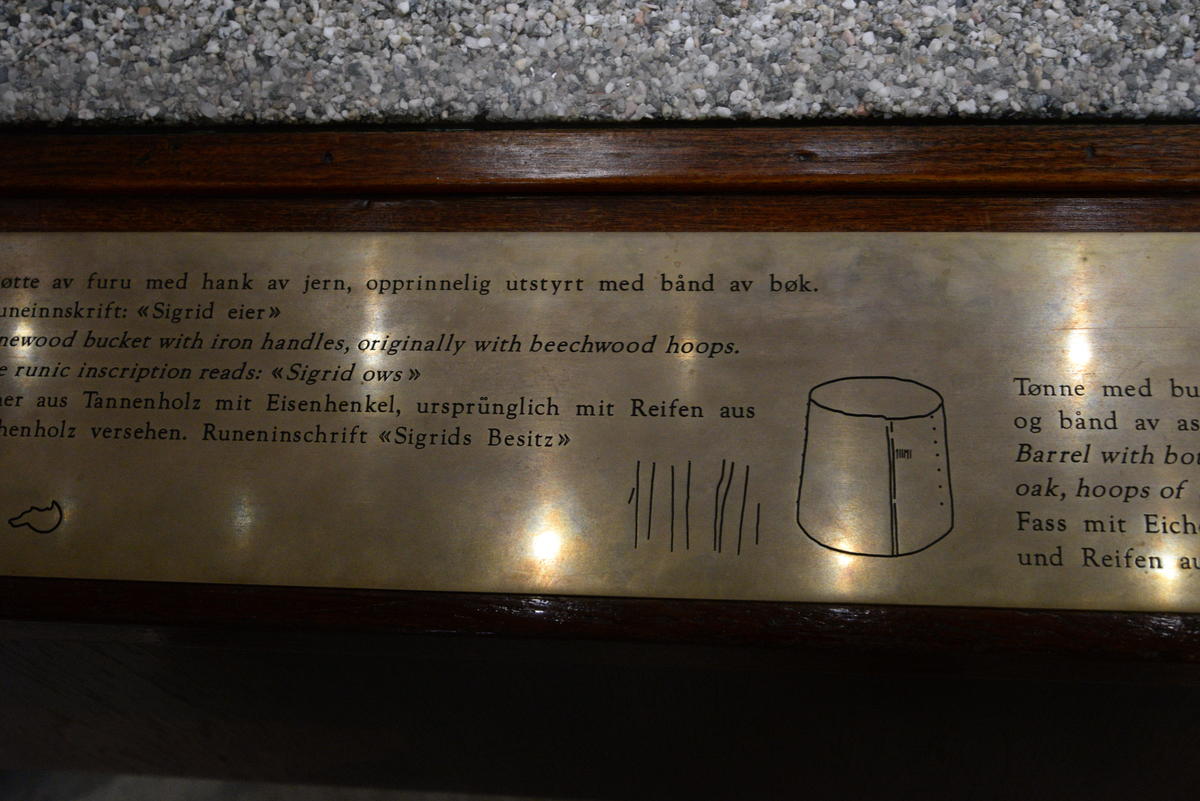 øtte av furu med hank av jern, opprinnelig utstyrt med bånd av bøk.
uneinnskrift: «Sigrid eier»
newood bucket with iron handles, originally with beechwood hoops.
e runic inscription reads: «Sigrid ows»
er aus Tannenholz mit Eisenhenkel, ursprünglich mit Reifen aus
henholz versehen. Runeninschrift «Sigrids Besitz»
Tønne med bu
og bånd av as
Barrel with bot
oak, hoops of
Fass mit Eich
und Reifen au